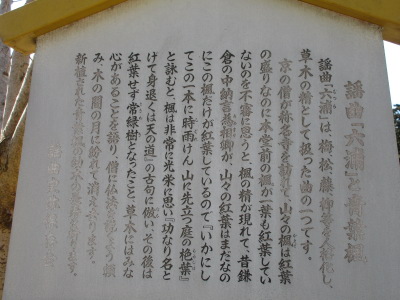 謡曲「六浦」と青葉楓
謡曲「六浦」は、梅、松、藤、柳等を人格化し、
草木の精として扱った曲の一つです。
京の僧が称名寺を訪れて、山々の楓は紅葉
の盛りなのに本堂前の楓が一葉も紅葉してい
ないのを不審に思うと、楓の精が現れて、昔鎌
倉の中納言為相卿が、山々の紅葉はまだなの
にここの楓だけが紅葉しているので『いかにし
てこの一本に時雨けん 山に先立つ庭の楓葉』
と詠むと、楓は非常に光栄に思い『功なり名と
げて身退くは天の道』の古句に倣い、その後は
紅葉せず常緑樹となったこと、草木にはみな
心があることを語り、僧に仏法を説くよう頼
み、木の間の月に紛れて消え
新植された青葉楓
謡曲